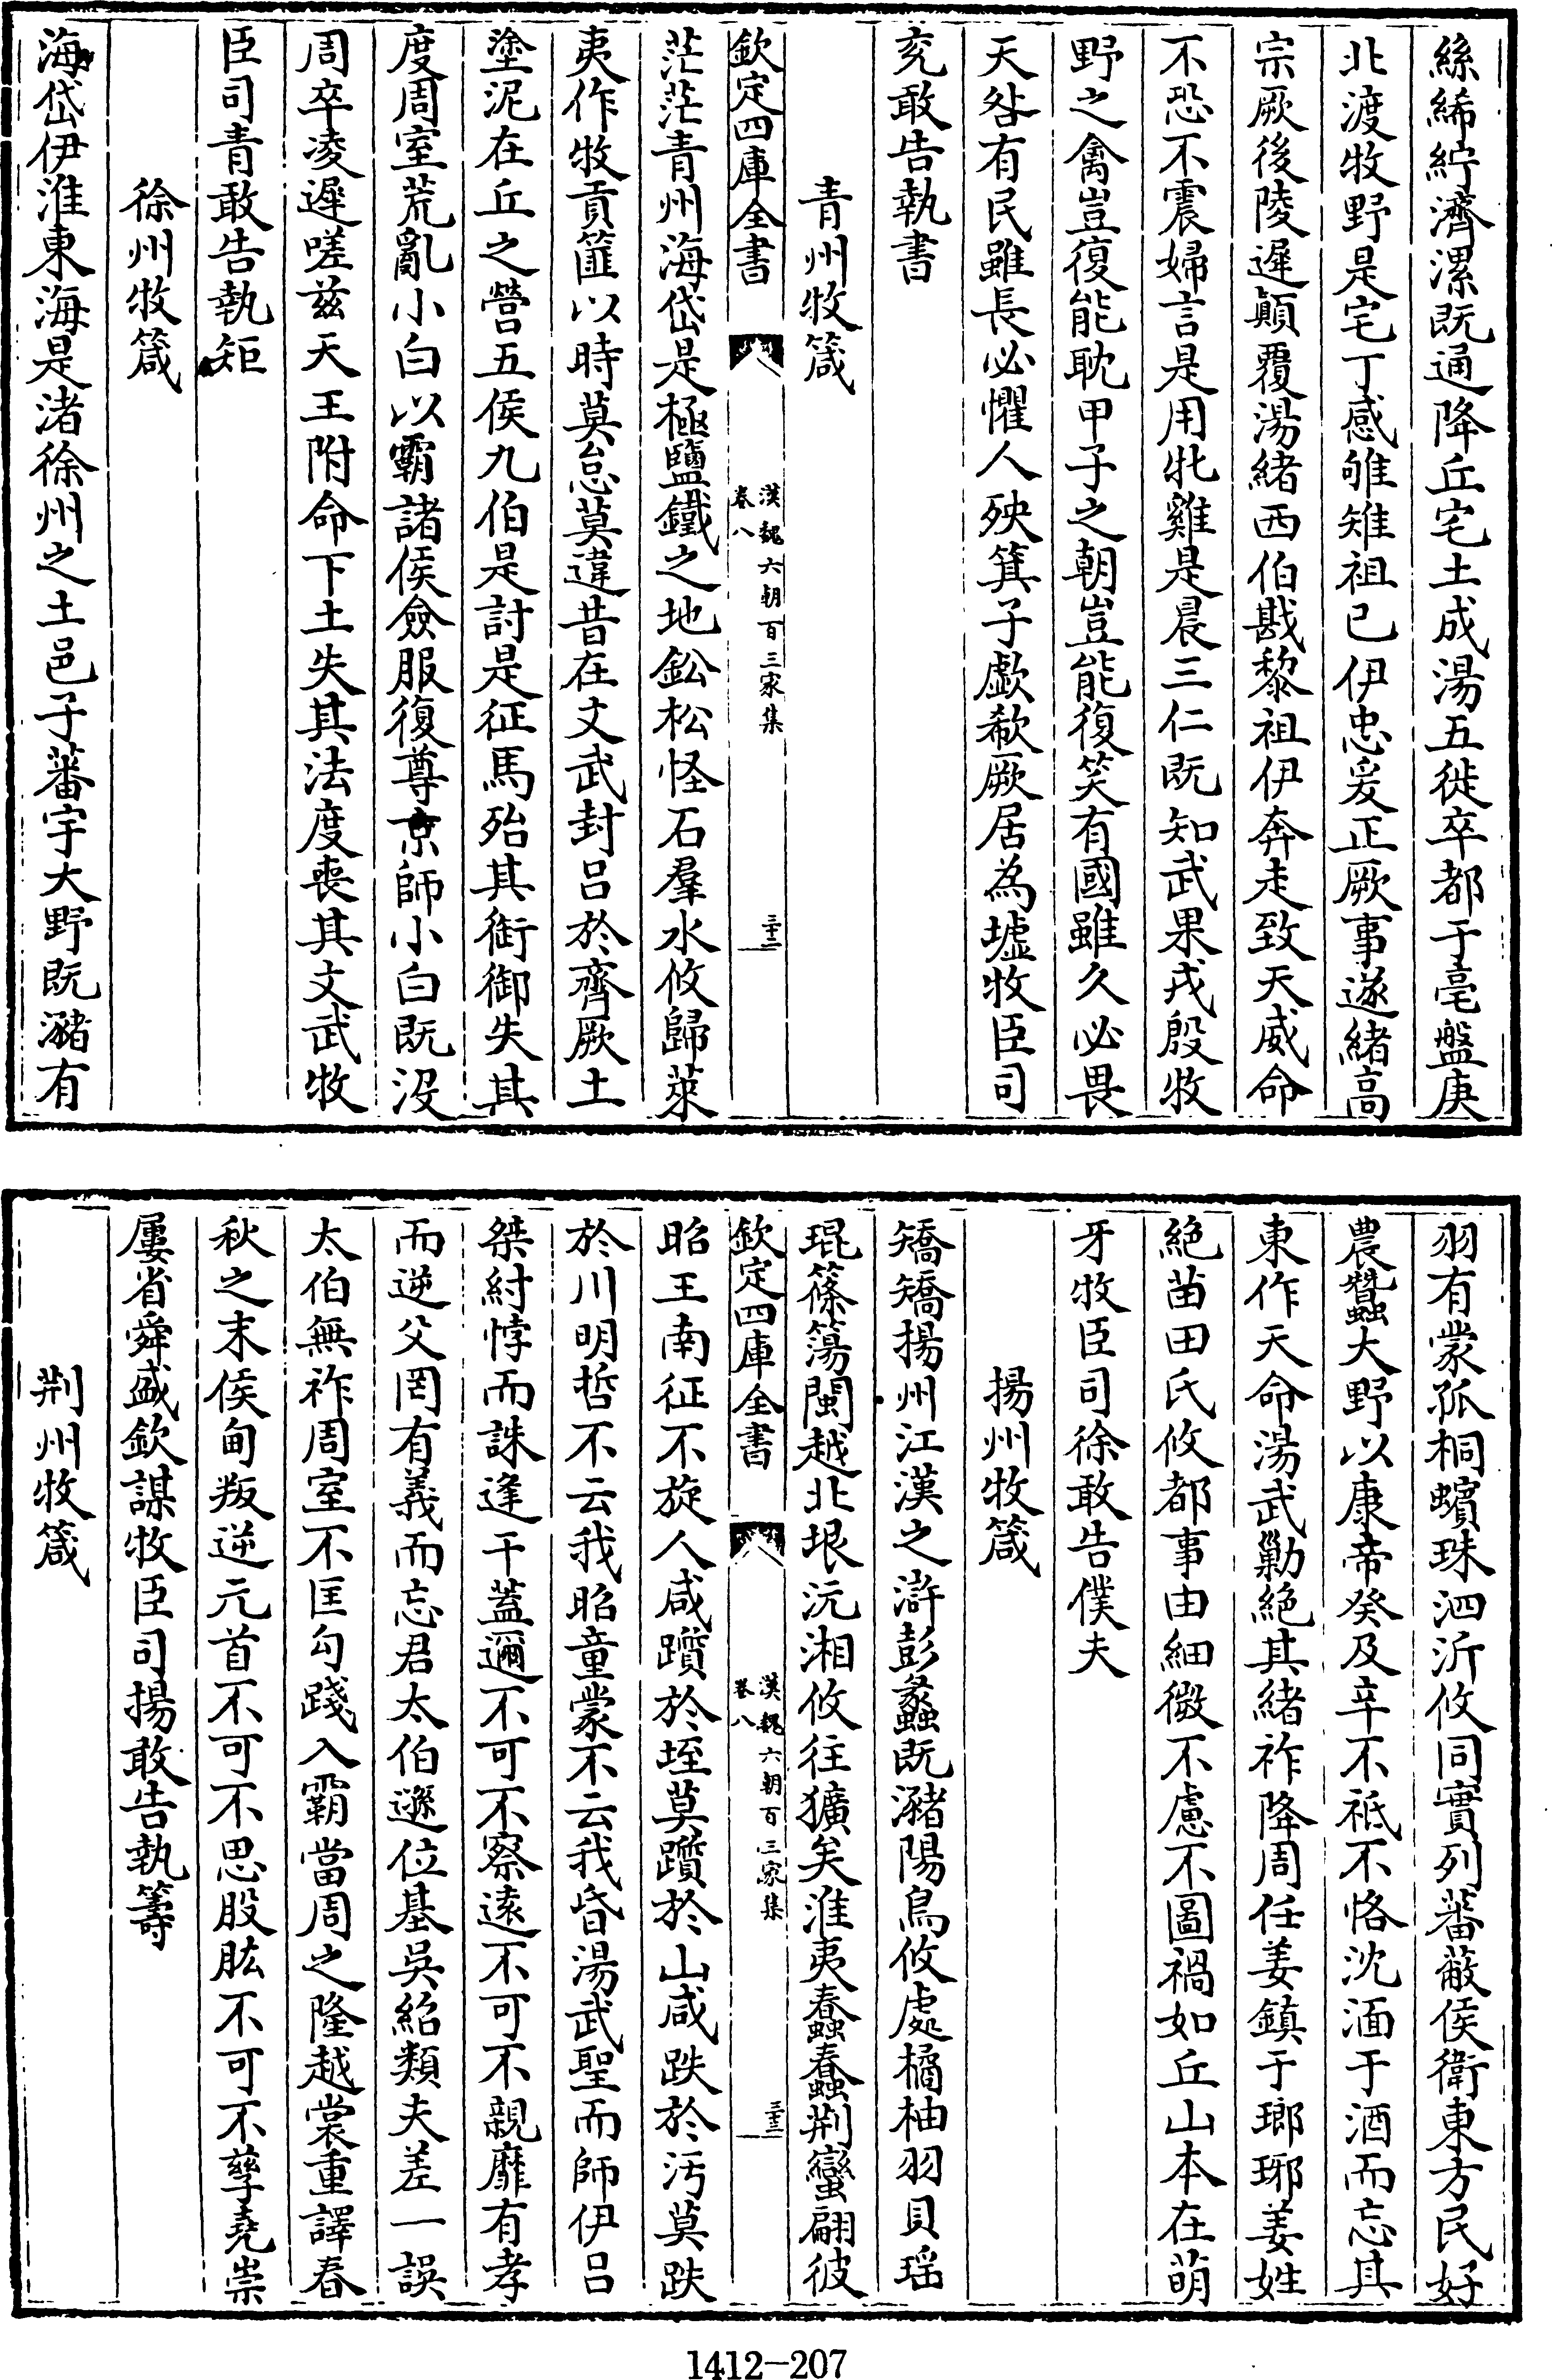 絲絺紵濟漯既通降丘宅土成湯五徙卒都于亳盤庚
北渡牧野是宅丁感雊雉祖已伊忠爰正厥事遂緒高
宗厥後陵遲顛覆湯緒西伯戡黎祖伊奔走致天威命
不恐不震婦言是用牝雞是晨三仁既知武果戎殷牧
野之禽豈復能耽甲子之朝豈能復笑有國雖久必畏
天咎有民雖長必懼人殃箕子歔欷厥居為墟牧臣司
兖敢告執書
青州牧箴
欽定四庫全書
漢魏六朝百三家集
卷八
三十二
茫茫青州海岱是極鹽鐵之地鈆松怪石羣水攸歸萊
夷作牧貢篚以時莫怠莫違昔在文武封呂於齊厥土
塗泥在丘之營五侯九伯是討是征馬殆其銜御失其
度周室荒亂小白以霸諸侯僉服復尊京師小白既没
周卒凌遲嗟兹天王附命下土失其法度喪其文武牧
臣司青敢告執矩
徐州牧箴
海岱伊淮東海是渚徐州之土邑于蕃宇大野既瀦有
羽有蒙孤桐蠙珠泗沂攸同實列蕃蔽侯衛東方民好
農蠶大野以康帝癸及辛不祗不恪沈湎于酒而忘其
東作天命湯武勦絶其緒祚降周任姜鎮于瑯琊姜姓
絶苗田氏攸都事由細微不慮不圖禍如丘山本在萌
牙牧臣司徐敢告僕夫
揚州牧箴
矯矯揚州江漢之滸彭蠡既瀦陽鳥攸處橘柚羽貝瑶
琨篠簜閩越北垠沅湘攸往獷矣淮夷蠢蠢荆蠻翩彼
欽定四庫全書
漢魏六朝百三家集
卷八
三十三
昭王南征不旋人咸躓於垤莫躓於山咸跌於汚莫跌
於川明哲不云我昭童蒙不云我昏湯武聖而師伊呂
桀紂悖而誅逢干蓋邇不可不察遠不可不親靡有孝
而逆父罔有義而忘君太伯遜位基吳紹類夫差一誤
太伯無祚周室不匡勾踐入霸當周之隆越裳重譯春
秋之末侯甸叛逆元首不可不思股肱不可不孳堯崇
屢省舜盛欽謀牧臣司揚敢告執籌
荆州牧箴
1412-207